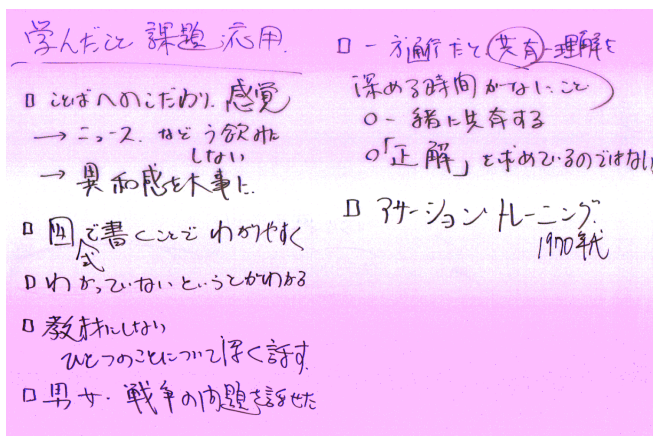 学んだこと 課題 応用.
□ ことばへのこだわり. 感覚
→ ニュース. など う飲みに
しない
→ 異和感を大事に.
□ 図で書くことで わかりやすく
式
□ わかっていないということがわかる
□ 教材にしない
ひとつのことについて深く話す.
□ 男女・戦争の問題を話せた
□ 一方通行だと 共有-理解を
深める時間がないこと
○一緒に共有する
○「正解」を求めているのではない
□ アサーション・トレーニング.
1970年代